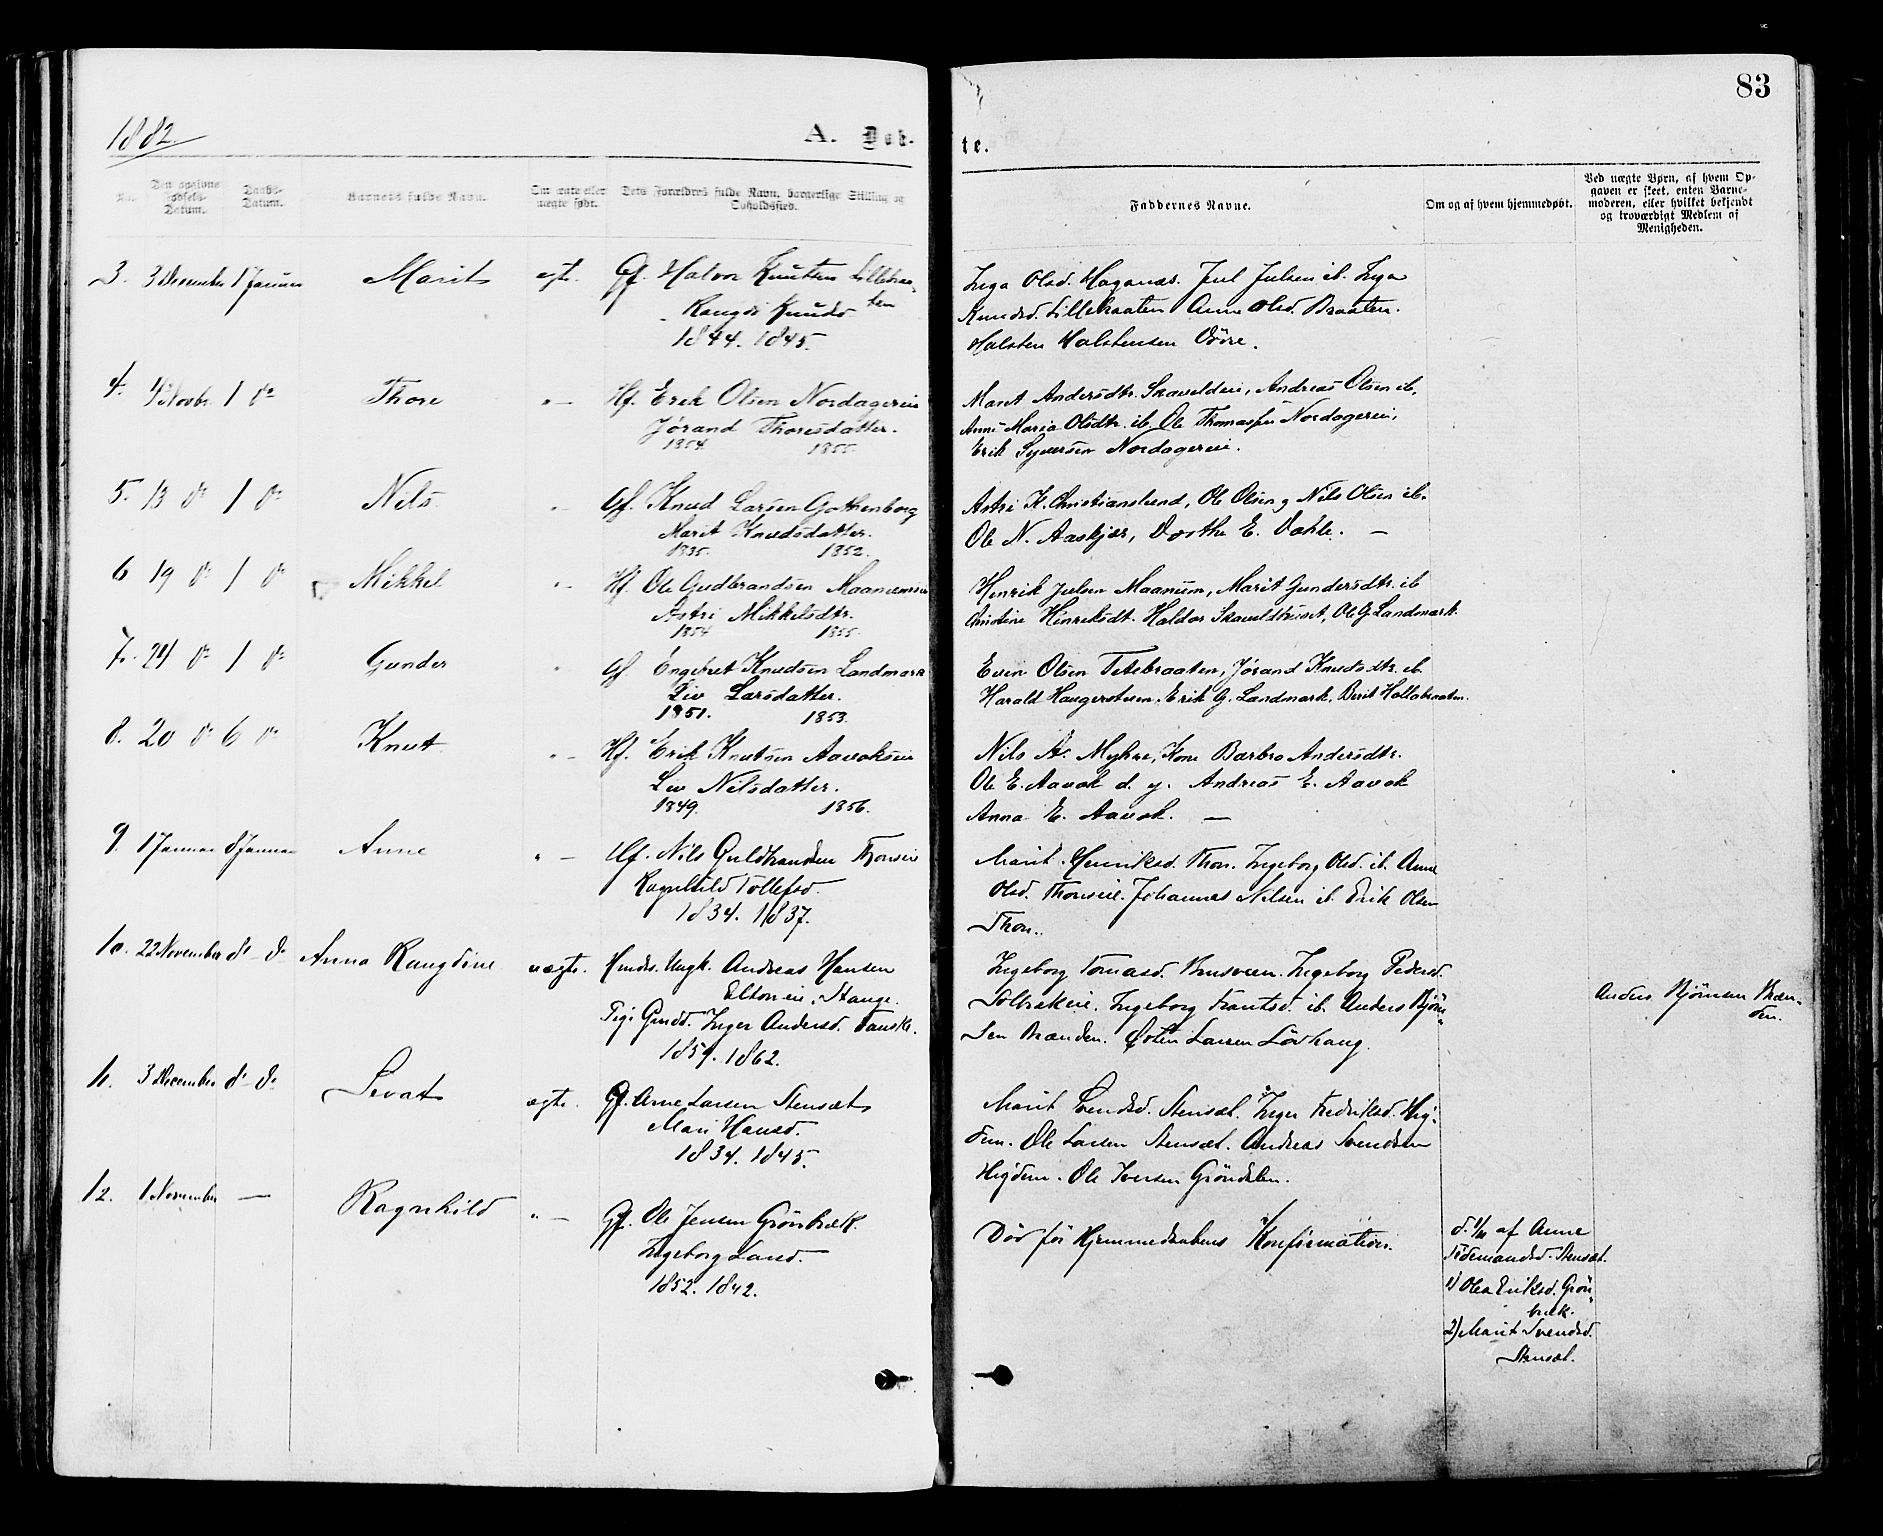 83
1882.
A. Døb-
te.
No.
Den opgivne
Fødsels-
Datum.
Daabs-
Datum.
Barnets fulde Navn.
Om ægte eller
uægte født.
Dets Forældres fulde Navn, borgerlige Stilling og
Opholdssted.
Faddernes Navne.
Om og af hvem hjemmedøbt.
Ved uægte Børn, af hvem Op-
gaven er skeet, enten Barne-
moderen, eller hvilket bekjendt
og troværdigt Medlem af
Menigheden.
3. 3 December 1 Januar Marit ægte. Gf. Halvor Knutsen Lillebraa-
ten
Rangdi Knudsd
1844. 1845.
Inga Olsd. Haganæs. Jul Julsen ib. Inga
Knudsd. Lillebraaten Anne Olsd. Braaten.
Halsten Halstensen
4. 4 Novbr. 1 do Thore " — Hf. Erik Olsen Nordagereie
Jørand Thoresdatter.
1854. 1855.
Marit Andersdtr. Andreas Olsen ib.
Anne Maria Olsdtr. ib. Ole Thomassen Nordagerei,
Erik Syversen Nordagereie.
5. 13 do 1 do Nils " Gf. Knud Larsen Gothenborg
Marit Knudsdatter.
1835. 1852.
Astri K. Christianslund, Ole Olsen og Nils Olsen ib.
Ole N. Aaskjær, Dorthe E. Dahle. —
6 19 do 1 do Mikkel " Hf. Ole Gudbrandsen Maanumeie
Astri Mikkelsdtr.
1854 1855.
Henrik Julsen Maanum, Marit Gundersdtr. ib
Christine Henriksdt. Haldor Ole G. Landmark.
7. 24 do 1 do Gunder " Gf Engebret Knudsen Landmark
Liv Larsdatter.
1851. 1853.
Even Olsen Jørand Knudsdtr. ib
Harald Haugerstuen. Erik G. Landmark, Berit Hallabraaten.
8. 20 do 6 do Knut " Hf. Erik Knutsen Aavokseie
Liv Nilsdatter.
1849. 1856.
Nils A. Myhre, Kone Barbro Andersdtr.
Ole E. Aavok d. y. Andreas E. Aavok
Anna E. Aavok. —
9. 1 Januar 8 Januar Anne " — Hf. Nils Guldbrandsen Thoneie
Ragnhild Tollefsd.
1834. 1837.
Marit Henriksd. Thon. Ingeborg Olsd. ib. Anne
Olsd. Thoneie. Johannes Nilsen ib. Erik Olsen
Thon.
10. 22 November d - d Anna Rangdine uægte. Ungk. Andreas Hansen
Eltoneie, Stange.
Pige Inger Andersd.
1859. 1862.
Ingeborg Tomasd. Ingeborg Pedersd.
Solbrækeie. Ingeborg Frantsd. ib. Anders Bjørn-
sen Brænden. Østen Larsen Løvhaug.
Anders Bjørnsen Bræn-
den.
11. 3 December d - d Sevat ægte. Gf. Arne Larsen Stensæt
Mari Hansd.
1834. 1845.
Marit Svendsd. Stensæt. Inger Fredriksd. Hig-
dem. Ole Larsen Stensæt. Andreas Svendsen
Higdem. Ole Iversen Grøndalen.
12. 1 November — Ragnhild " — Gf. Ole Jensen Grønbræk.
Ingeborg Larsd.
1852. 1842.
Død før Hjemmedaabens Konfirmation.
d. 1/11 af Anne
Tidemandsd. Stensæt.
1) Olea Eriksd. Grøn-
bræk.
2) Marit Svendsd.
Stensæt.